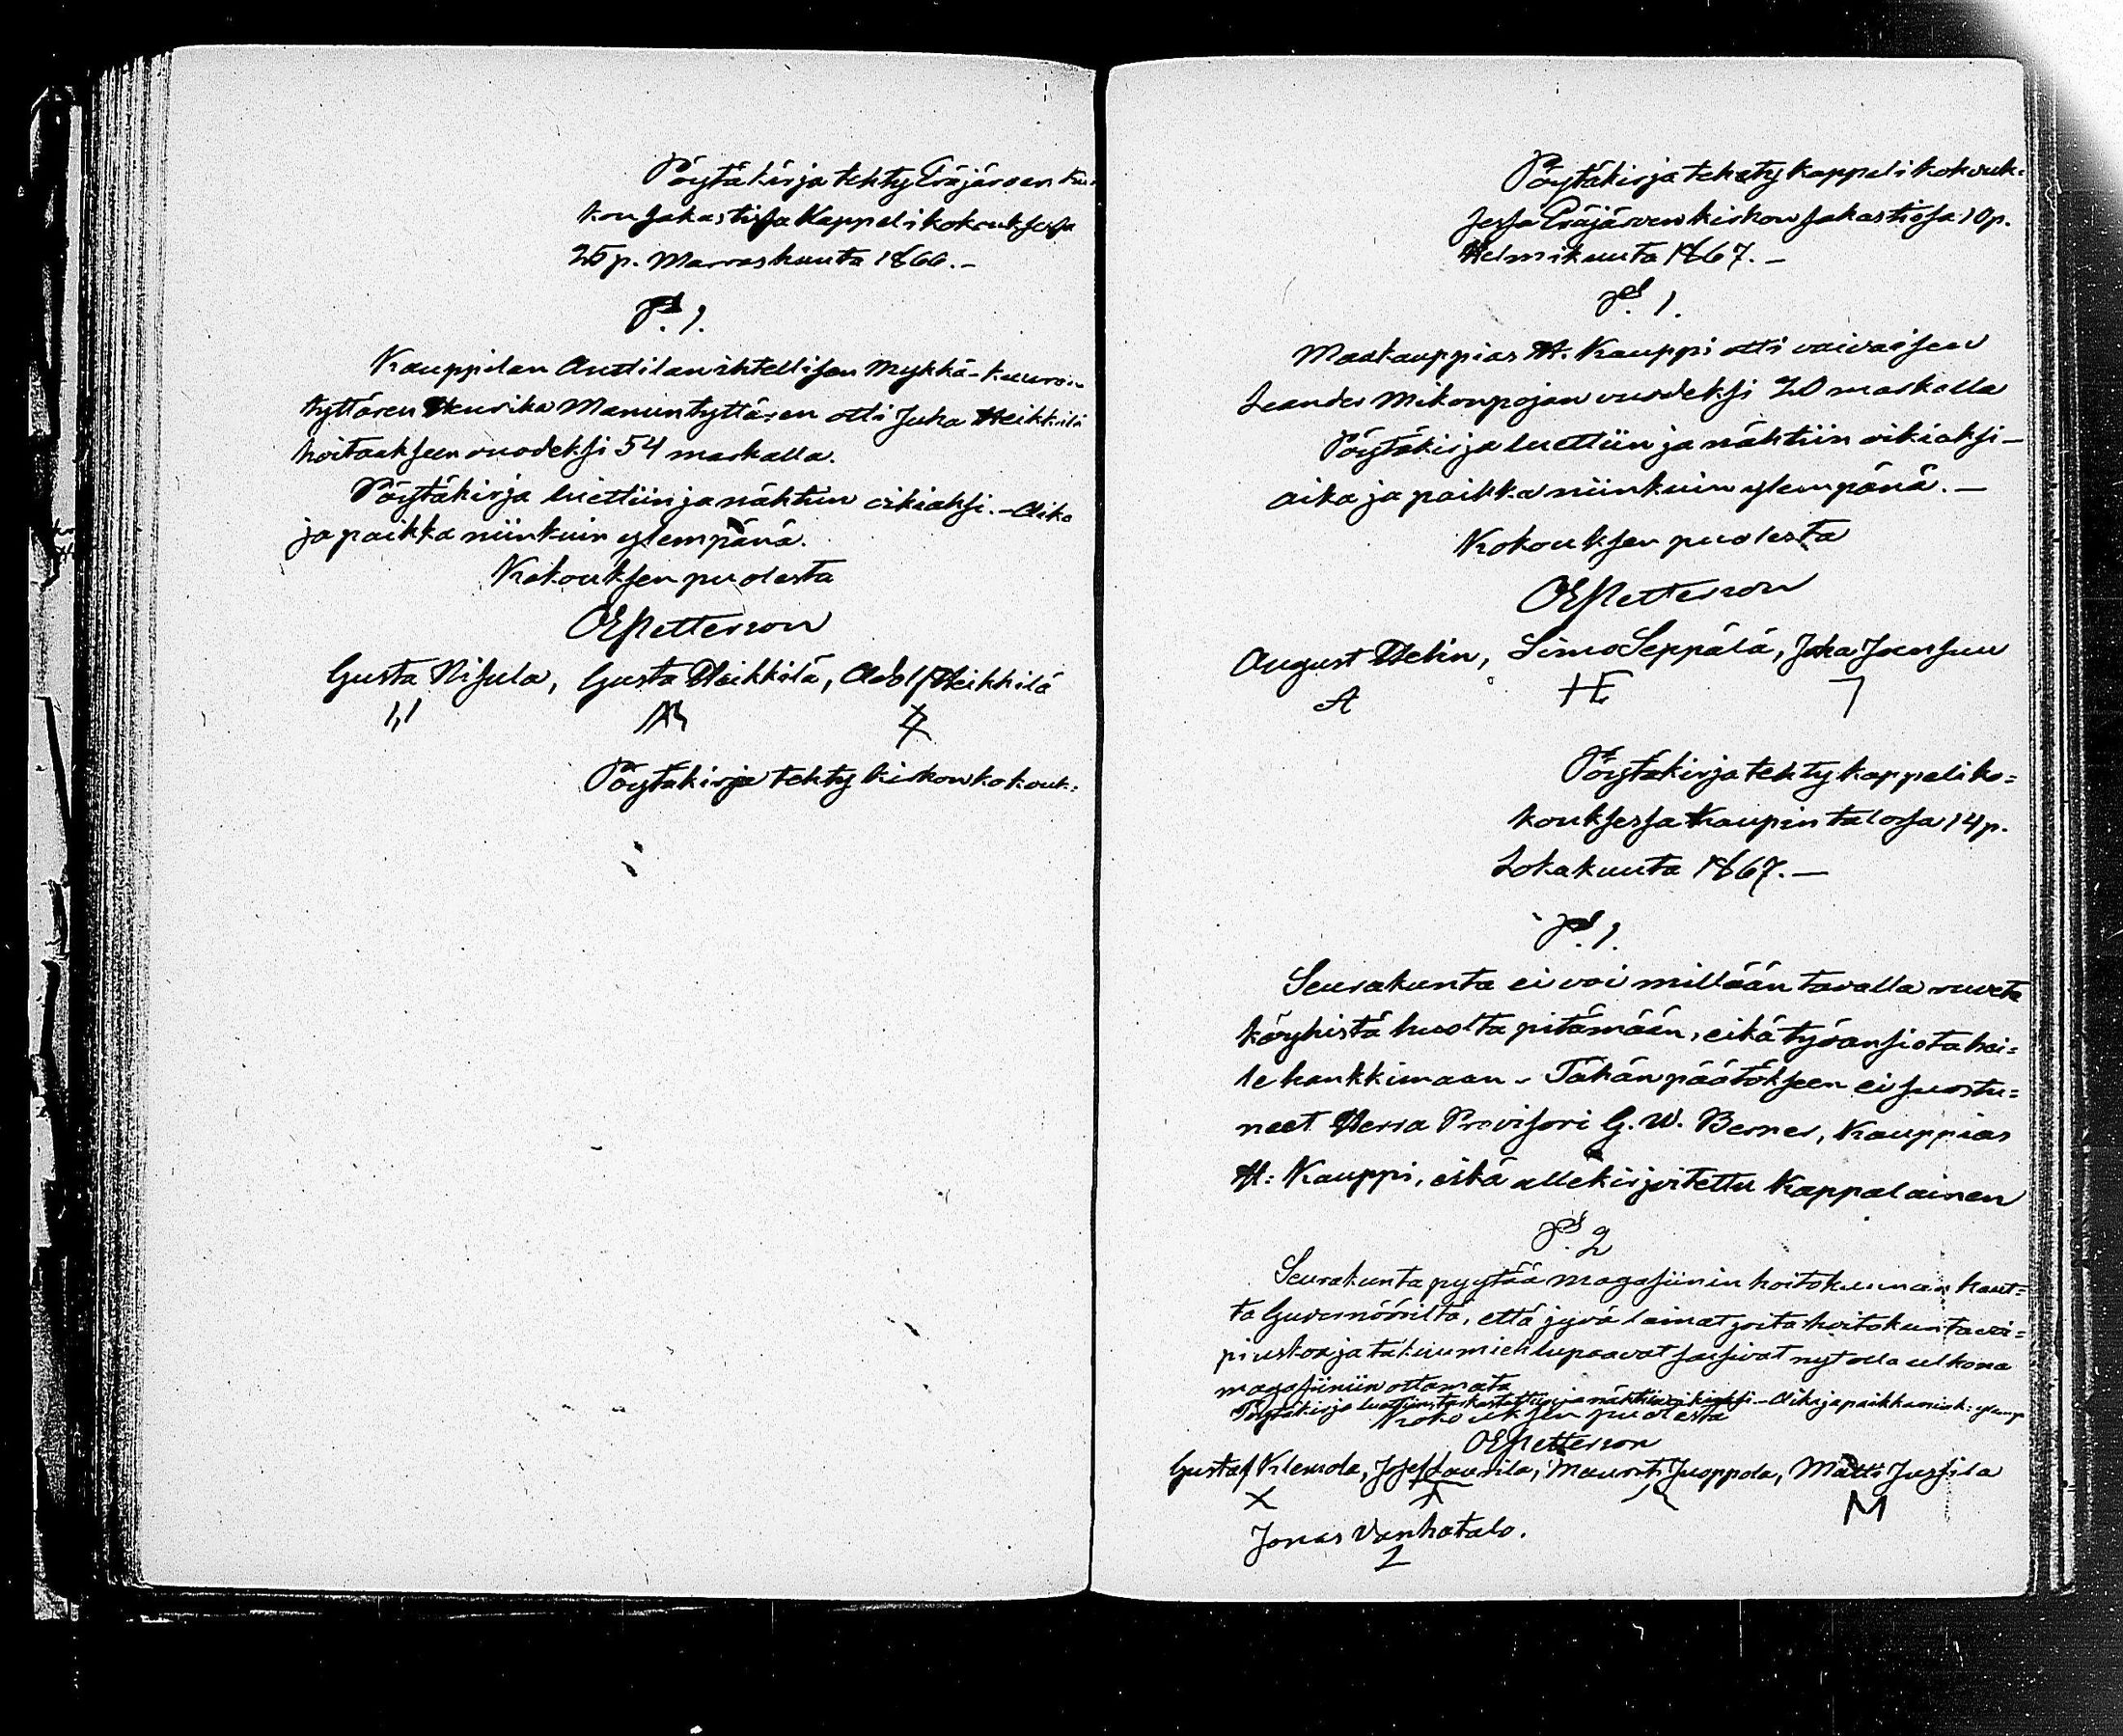 Pöytäkirja tehty Eräjärven kir-
kon sakastissa Kappelikokouksessa
25 p. Marraskuuta 1866.-
ps. 1.
Kauppilan Anttilan ihtellisen Mykkä-kuuron
tyttären Henrika Manuntyttären otti Juha Heikkilä
hoitaakseen vuodeksi 54 markalla.
Pöytäkirja luettiin ja nähtiin oikiaksi.- Aika
ja paikka niinkuin ylempänä.
Kokouksen puolesta
OEPetterson
Gusta Nisula, Gusta Heikkilä, Adolf Heikkilä
Pöytäkirja tehty kirkonkokouk:
Pöytäkirja tehty kappelikokouk:
sessa Eräjärven kirkon sakastissa 10 p.
Helmikuuta 1867.-
ps. 1.
Maakauppias H. Kauppi otti vaivaisen
Leander Mikonpojan vuodeksi 20 markalla
Pöytäkirja luettiin ja nähtiin oikiaksi-
aika ja paikka niinkuin ylempänä.-
Kokouksen puolesta
OEPetterson
August Helin, Simo Seppälä, Juha Joensuu
A
Pöytäkirja tehty kappeliko=
kouksessa Kaupin talossa 14 p.
Lokakuuta 1867.-
ps. 1.
Seurakunta ei voi millään tavalla ruveta
köyhistä huolta pitämään, eikä työansiota hei=
le hankkimaan - Tähän päätökseen ei suostu=
neet Herra Provisori G. W. Berner, Kauppias
H: Kauppi, eikä allekirjoitettu Kappalainen
ps. 2
Seurakunta pyytää magasiinin hoitokunnan kaut=
ta Guvernööriltä, että jyvä lainat joita hoitokunta
ja takuumieh lupaavat saisivat nyt olla ulkona
magasiiniin ottamata
Pöytäkirja luettiin, tarkastettiin ja nähtiin oikiaksi - Aika ja paikka niink: ylemp
Kokouksen puolesta
OEPetterson
Gustaf Klemola, Josef Laurila, Maurits Juoppola, Matti Jussila
X M
Jonas Vanhatalo.